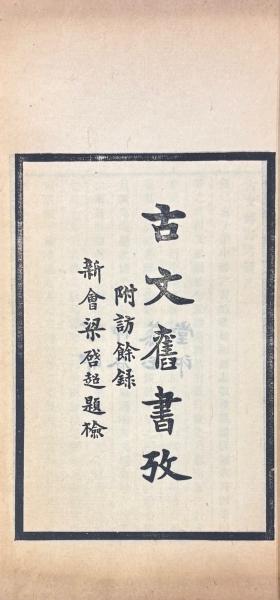 古文舊書攷
附訪餘録
新會梁啓超題檢